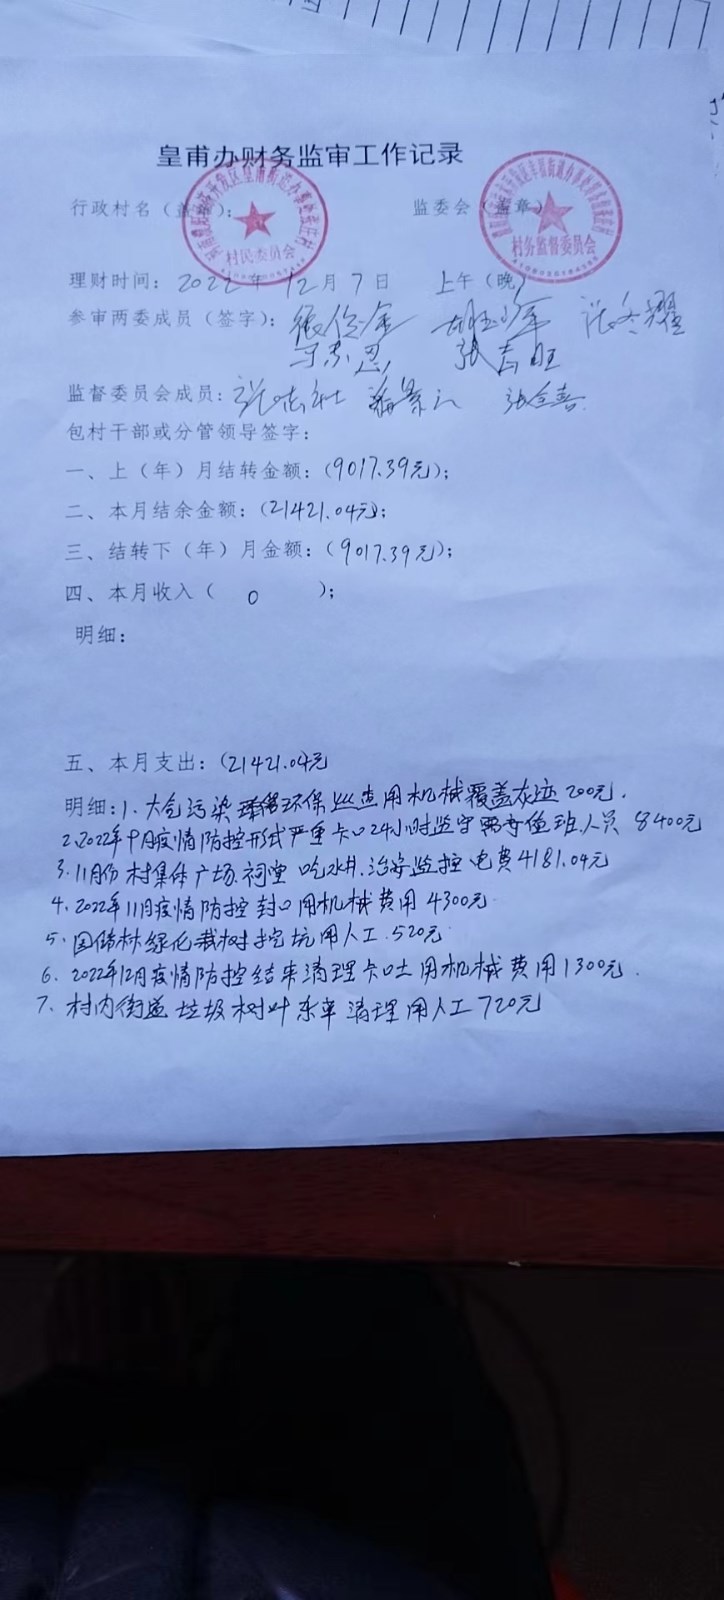 皇甫办财务监审工作记录
行政村名（盖章）： 监委会（盖章）
村民委员会
村务监督委员会
理财时间：2022年12月7日 上午（晚）
参审两委成员（签字）：
监督委员会成员：
包村干部或分管领导签字：
一、上（年）月结转金额：（9017.39元）；
二、本月结余金额：（21421.04元）；
三、结转下（年）月金额：（9017.39元）；
四、本月收入（ 0 ）；
明细：
五、本月支出：（21421.04元
明细：1、大气污染环保巡查用机械覆盖灰迹200元.
2.2022年十月疫情防控形式严重卡口24小时监守值班人员8400元
3.11月份村集体广场.祠堂吃水井.治安监控电费4181.04元
4.2022年11月疫情防控封口用机械费用4300元
5、国储林绿化栽树挖坑用人工.520元
6、2022年12月疫情防控结束清理卡口土用机械费用1300元.
7、村内街道垃圾树叶杂草清理用人工720元